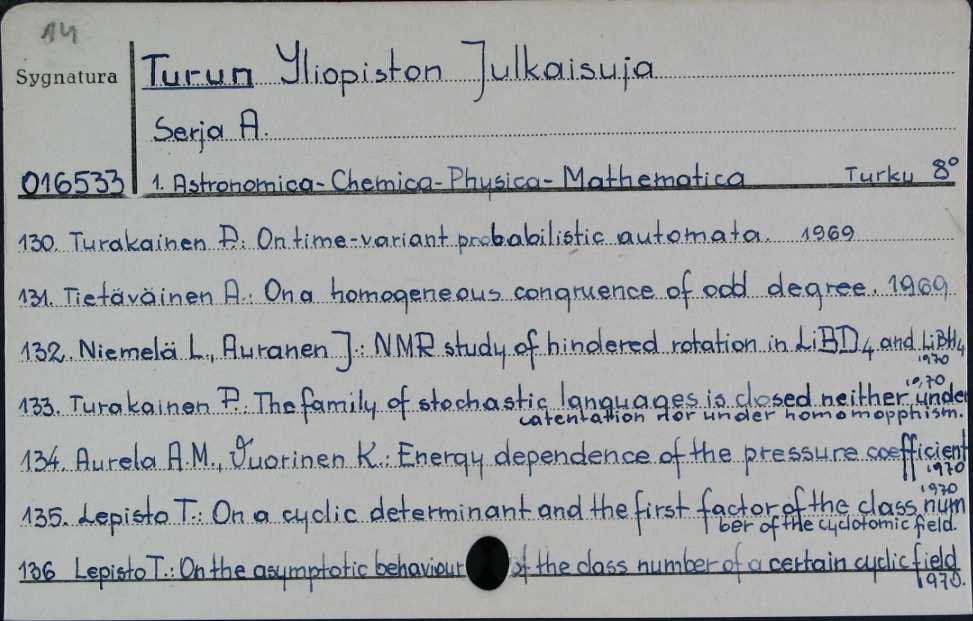 14
Sygnatura
Turun Yliopiston Julkaisuja
Serja A.
016533
1. Astronomica-Chemica-Physica-Mathematica Turku 8°
130. Turakainen P.: On time-variant probabilistic automata. 1969
131. Tietäväinen A.: On a homogeneous congruence of odd degree. 1969
132. Niemelä L., Auranen J.: NMR study of hindered rotation in LiBD4 and LiBH4
1970
1970
133. Turakainen P.: The family of stochastic languages is closed neither under
catentation nor under homomopphism.
134. Aurela A.M., Vuorinen K.: Energy dependence of the pressure coefficient
1970
1970
135. Lepisto T.: On a cyclic determinant and the first factor of the class num
ber of the cyclotomic field.
136 Lepisto T.: On the asymptotic behaviour of the class number of a certain cyclic field
1970.